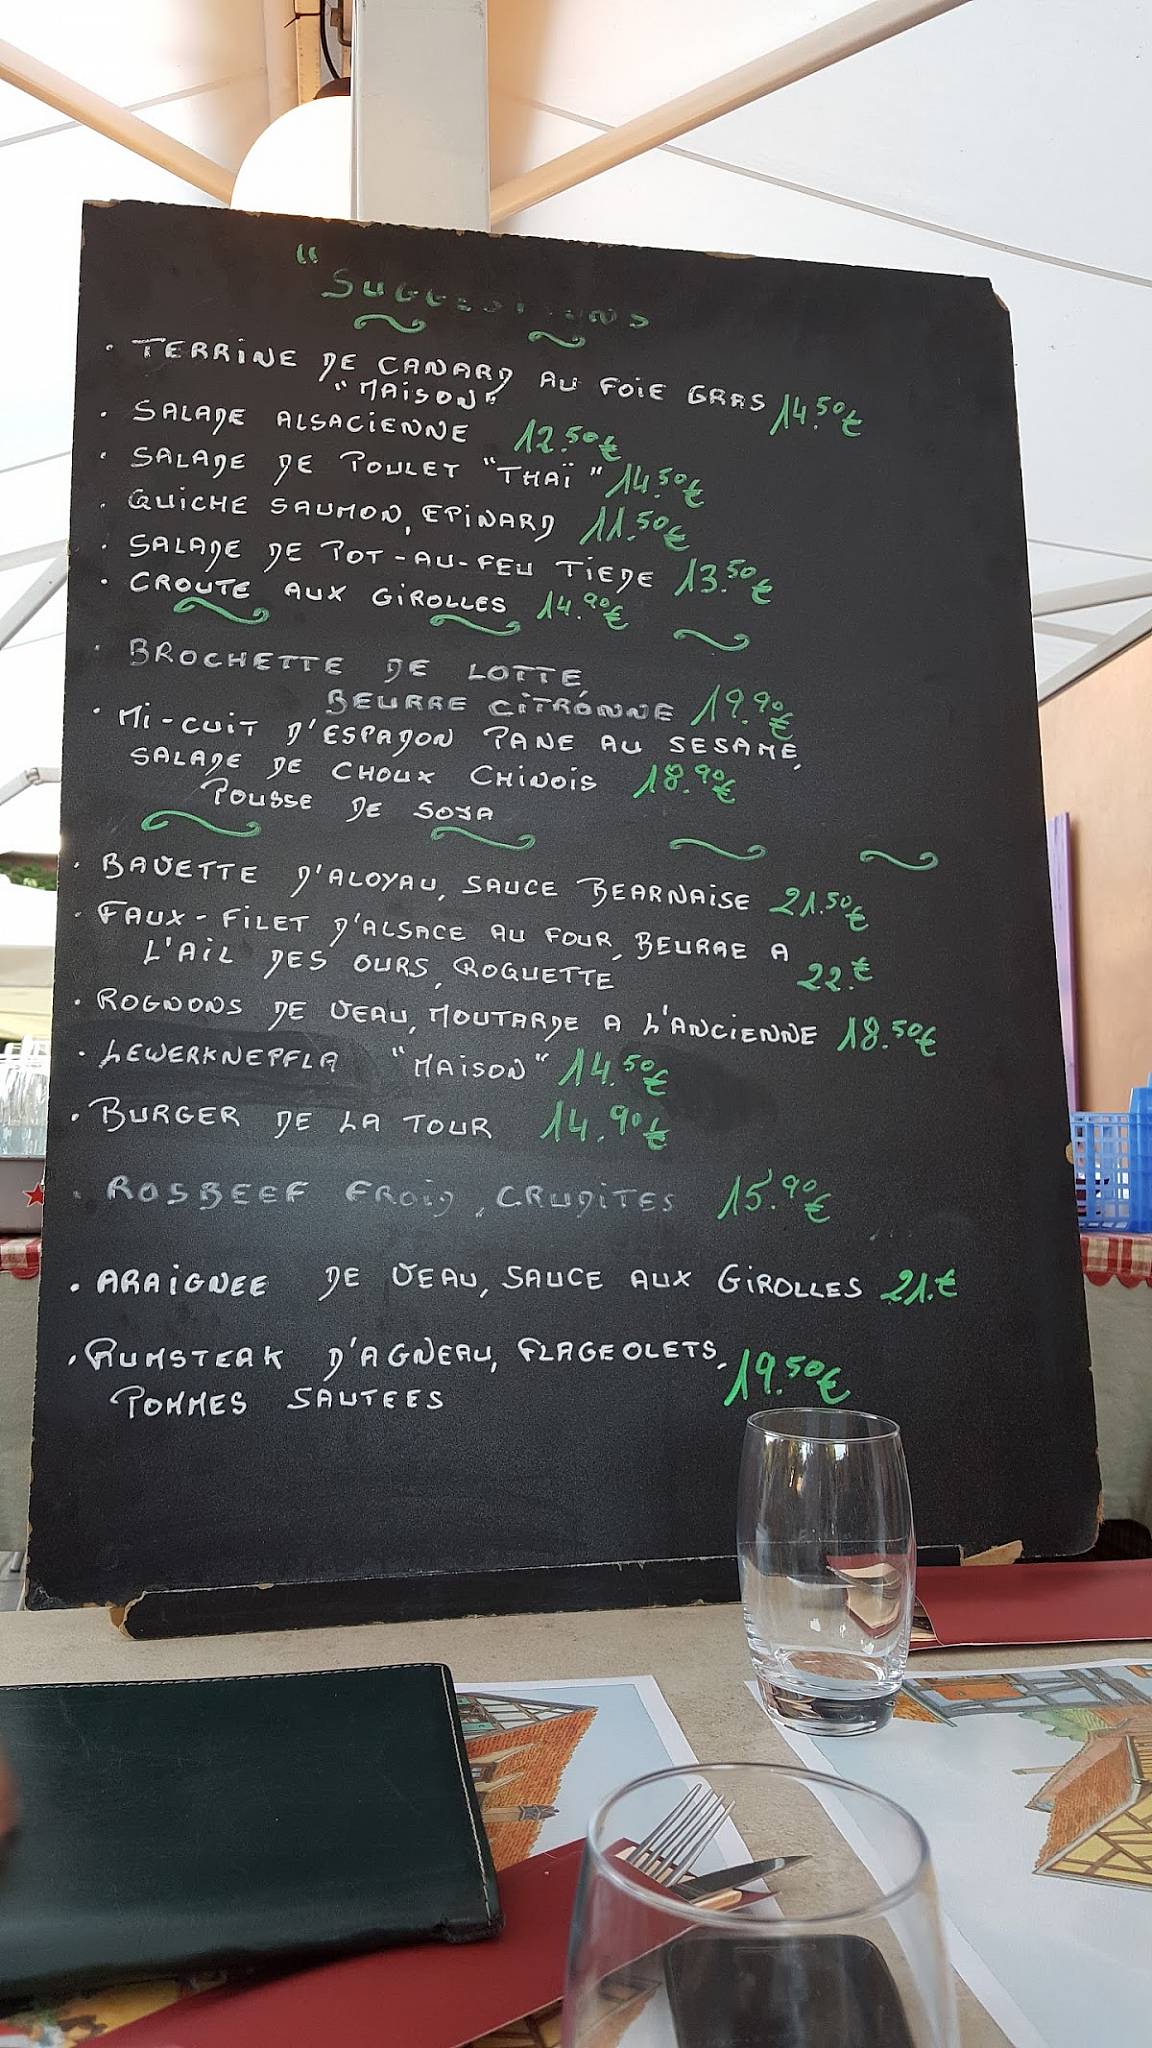 "
SUGGESTIONS
· TERRINE DE CANARD AU FOIE GRAS 14.50€
"MAISON"
· SALADE ALSACIENNE 12.50€
· SALADE DE POULET "THAÏ" 14.50€
· QUICHE SAUMON, EPINARD 11.50€
· SALADE DE POT-AU-FEU TIEDE 13.50€
· CROUTE AUX GIROLLES 14.90€
· BROCHETTE DE LOTTE,
BEURRE CITRONNE 19.90€
· MI-CUIT D'ESPADON PANE AU SESAME,
SALADE DE CHOUX CHINOIS 18.90€
POUSSE DE SOJA
· BAVETTE D'ALOYAU, SAUCE BEARNAISE 21.50€
· FAUX-FILET D'ALSACE AU FOUR, BEURRE A
L'AIL DES OURS, ROQUETTE 22.€
· ROGNONS DE VEAU, MOUTARDE A L'ANCIENNE 18.50€
· LEWERKNEPFLA "MAISON" 14.50€
· BURGER DE LA TOUR 14.90€
· ROSBEEF FROID, CRUDITES 15.90€
· ARAIGNEE DE VEAU, SAUCE AUX GIROLLES 21.€
· RUMSTEAK D'AGNEAU, FLAGEOLETS, 19.50€
POMMES SAUTEES